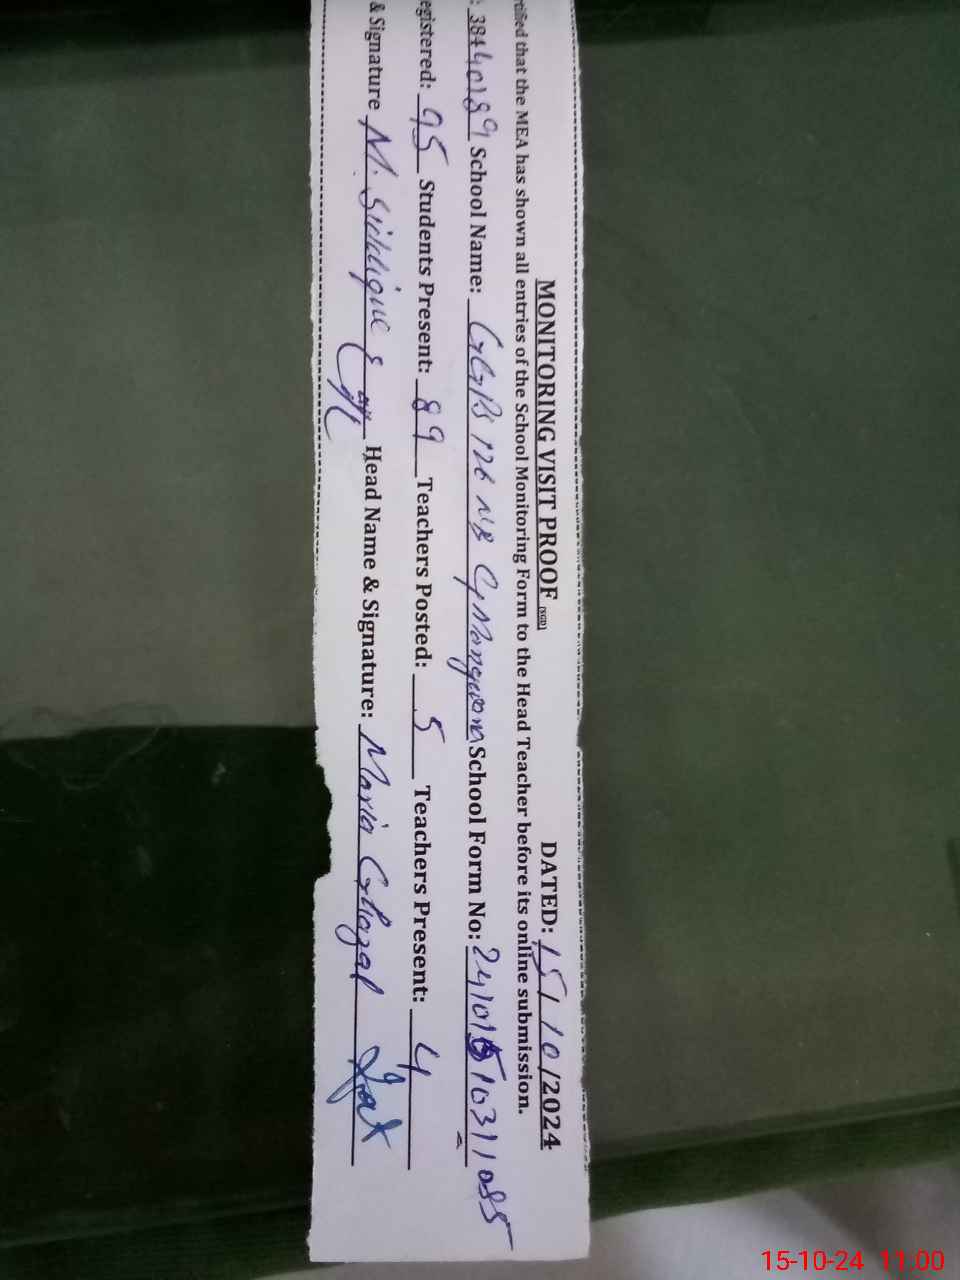 MONITORING VISIT PROOF DATED: 15/10/2024
rtified that the MEA has shown all entries of the School Monitoring Form to the Head Teacher before its online submission.
: 38440189 School Name: GGPS 126 NB School Form No:
egistered: 95 Students Present: 89 Teachers Posted: 5 Teachers Present: 4
& Signature M. Siddique Head Name & Signature: Maria Ghazal
15-10-24 11:00